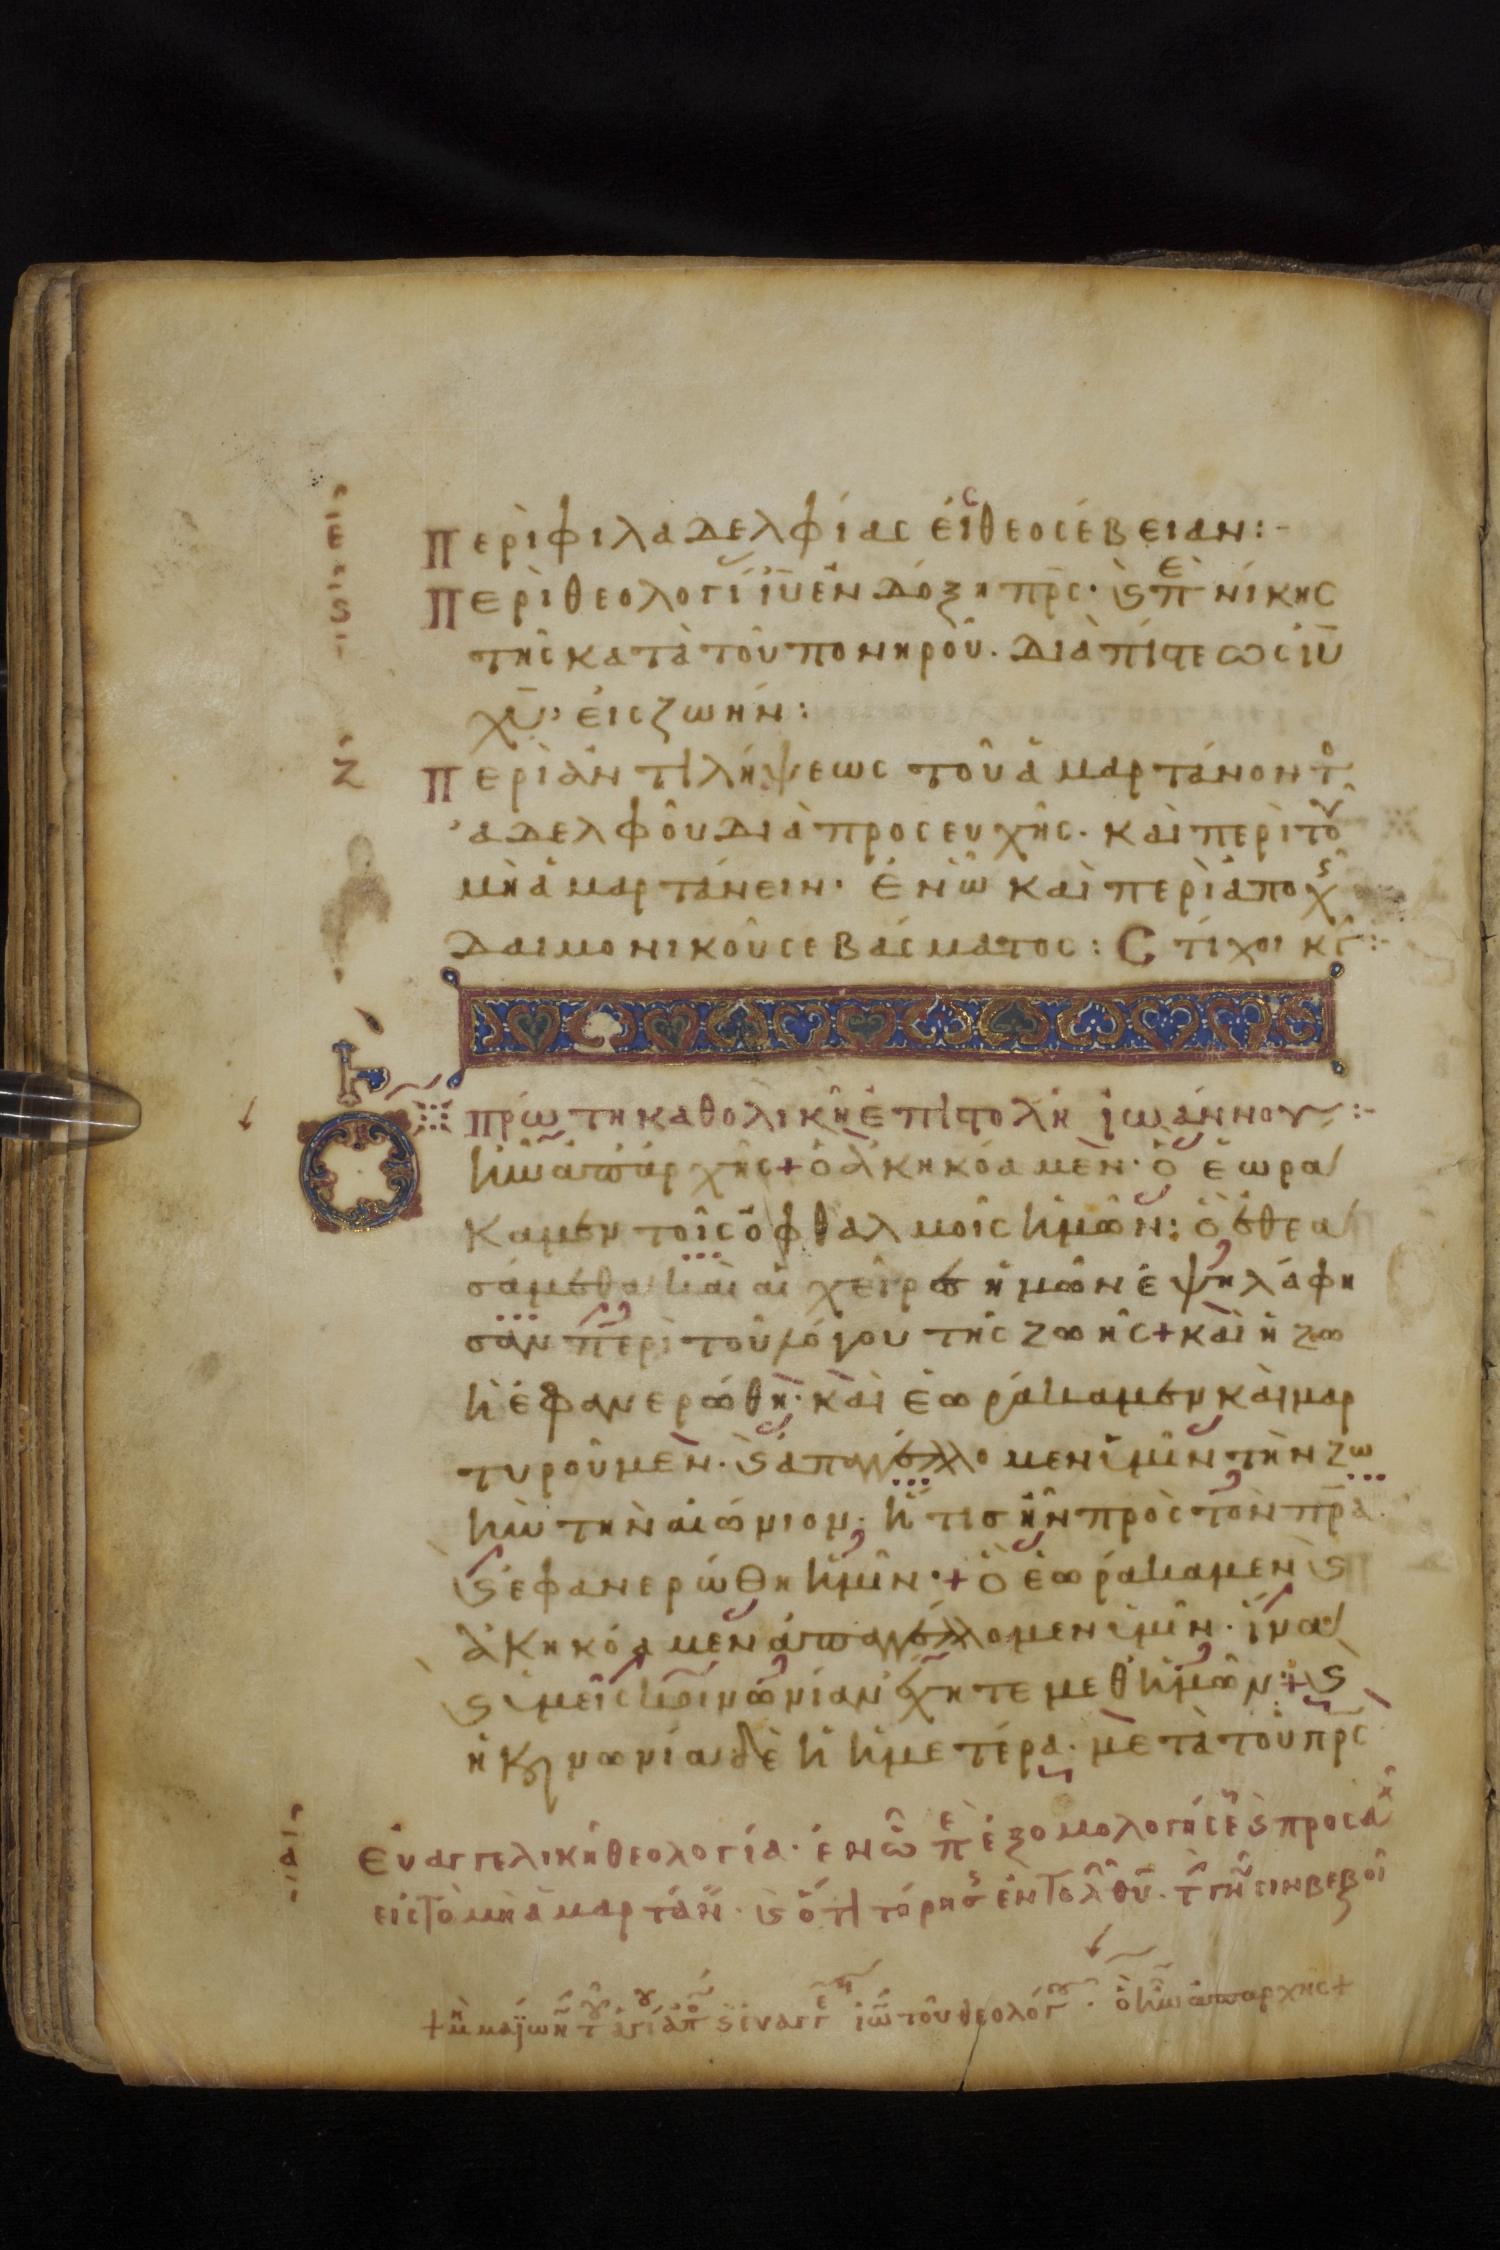 Ε
Περὶ φιλαδελφίας εἰς θεοσέβειαν:-
Ϛ
Περὶ θεολογί ἰῦ ἐν δόξη πρς· ϗ πε νίκης
τῆς κατὰ τοῦ πονηροῦ. διὰ πίστεως ἰῦ
χῦ· εἰς ζωήν:
Ζ
Περὶ ἀντιλήψεως τοῦ ἁμαρτάνοντο
ἀδελφοῦ διὰ προσευχῆς· καὶ περὶ τοῦ
μὴ ἁμαρτάνειν· ἐν ὧ καὶ περὶ ἀποχς
δαιμονικοῦ σεβάσματος: Στίχοι
πρώτη καθολικὴ ἐπιστολὴ ἰωάννου:-
Ὃ ἦν ἀπαρχῆς+ ὃ ἀκηκόαμεν· ὃ ἑωρά
καμεν τοῖς ὀφθαλμοῖς ἡμῶν: ὃ ἐθεα
σάμεθα καὶ αἱ χεῖρες ἡμῶν ἐψηλάφη
σαν περὶ τοῦ λόγου τῆς ζωῆς+ καὶ ἡ ζω
ὴ ἐφανερώθη· καὶ ἑωράκαμεν καὶ μαρ
τυροῦμεν. ϗ ἀπαγγέλλομεν ὑμῖν τὴν ζω
ὴν τὴν αἰώνιον· ἥτις ἦν πρὸς τὸν πρα.
ϗ ἐφανερώθη ἡμῖν·+ ὃ ἑωράκαμεν ϗ
ἀκηκόαμεν ἀπαγγέλλομεν ὑμῖν· ἵνα
ϗ ὑμεῖς κοινωνίαν ἔχητε μεθ ἡμῶν:+ ϗ
ἡ κοινωνία δὲ ἡ ἡμετέρα· μετὰ τοῦ πρς
Α
Εὐαγγελικὴ θεολογία· ἐν ὧ πε ἐξομολογήσε ϗ προσ
εἰς τὸ μὴ ἁμαρτάν· ϗ ὅτι τήρησ ἐντολ θῦ·
ἰω τοῦ θεολόγ · ὃ ἦν ἀπαρχῆς+